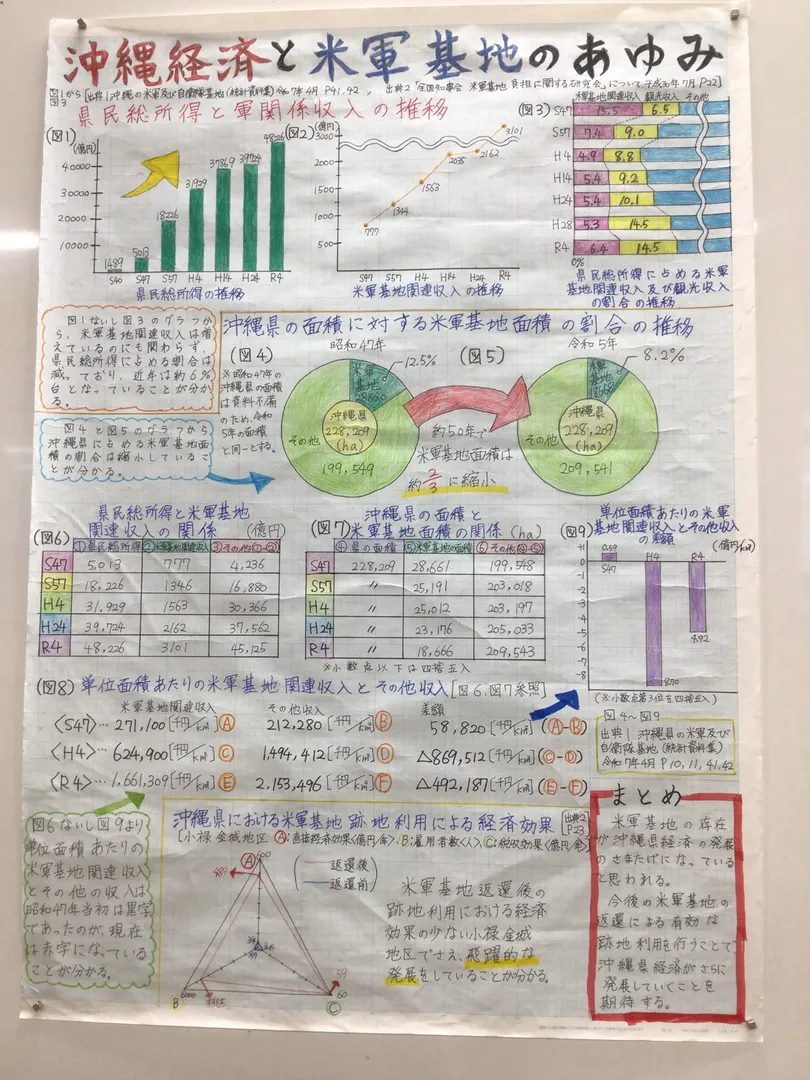 沖縄経済と米軍基地のあゆみ
図1から図3
[出典1 沖縄の米軍及び自衛隊基地(統計資料集)令和7年4月 P41,42 , 出典2 「全国知事会 米軍基地負担に関する研究会」について 平成30年7月 P22]
県民総所得と軍関係収入の推移
(図1)
(億円)
40000
30000
20000
10000
1489
5013
18226
31929
37869
39724
48226
S40 S47 S57 H4 H14 H24 R4
県民総所得の推移
(図2)
(億円)
3000
2000
1500
1000
500
777
1344
1563
2035
2162
3101
S47 S57 H4 H14 H24 R4
米軍基地関連収入の推移
(図3)
米軍基地関連収入 観光収入 その他
S47 15.5 6.5
S57 7.4 9.0
H4 4.9 8.8
H14 5.4 9.2
H24 5.4 10.1
H28 5.3 14.5
R4 6.4 14.5
0%
県民総所得に占める米軍
基地関連収入及び観光収入
の割合の推移
図1ないし図3のグラフか
ら、米軍基地関連収入は増
えているのにも関わらず、
県民総所得に占める割合は
減っており、近年は約6%
台となっていることが分か
る。
図4と図5のグラフから
沖縄県に占める米軍基地面
積の割合は縮小しているこ
とが分かる。
沖縄県の面積に対する米軍基地面積の割合の推移
(図4)
昭和47年
12.5%
※昭和47年の
沖縄県の面積
は資料不備
のため、令和
5年の面積
と同一とする。
米軍
基地
28660
沖縄県
228,209
(ha)
その他
199,549
約50年で
米軍基地面積は
約2/3に縮小
(図5)
令和5年
8.2%
米軍
基地
18668
沖縄県
228,209
(ha)
その他
209,541
(図6)
県民総所得と米軍基地
関連収入の関係 (億円)
①県民総所得 ②米軍基地関連収入 ③その他(①-②)
S47 5,013 777 4,236
S57 18,226 1346 16,880
H4 31,929 1563 30,366
H24 39,724 2162 37,562
R4 48,226 3101 45,125
(図7)
沖縄県の面積と
米軍基地面積の関係 (ha)
④県の面積 ⑤米軍基地の面積 ⑥その他(④-⑤)
S47 228,209 28,661 199,548
S57 〃 25,191 203,018
H4 〃 25,012 203,197
H24 〃 23,176 205,033
R4 〃 18,666 209,543
※小数点以下は四捨五入
(図9)
単位面積あたりの米軍
基地関連収入とその他収入
の差額
(億円/km²)
+1
0
-1
-2
-3
-4
-5
-6
-7
-8
0.59
S47
H4
R4
8.70
4.92
(※小数点第3位を四捨五入)
図4〜図9
出典1 沖縄県の米軍及び
自衛隊基地(統計資料集)
令和7年4月 P10,11,41,42
(図8) 単位面積あたりの米軍基地関連収入とその他収入[図6、図7参照]
米軍基地関連収入 その他収入 差額
<S47>… 271,100[千円/km²]Ⓐ 212,280[千円/km²]Ⓑ 58,820[千円/km²](Ⓐ-Ⓑ)
<H4>… 624,900[千円/km²]Ⓒ 1,494,412[千円/km²]Ⓓ △869,512[千円/km²](Ⓒ-Ⓓ)
<R4>… 1,661,309[千円/km²]Ⓔ 2,153,496[千円/km²]Ⓕ △492,187[千円/km²](Ⓔ-Ⓕ)
図6ないし図9より
単位面積あたりの
米軍基地関連収入
とその他の収入は
昭和47年当初は黒字
であったのが、現在
は赤字になっている
ことが分かる。
沖縄県における米軍基地跡地利用による経済効果
出典2
P23
[小禄金城地区 Ⓐ:直接経済効果<億円/年> Ⓑ:雇用者数<人> Ⓒ:税収効果<億円/年>]
返還後
返還前
A
489
34
59
B
6000
C
60
米軍基地返還後の
跡地利用における経済
効果の少ない小禄金城
地区でさえ、飛躍的な
発展をしていることが分かる。
まとめ
米軍基地の存在
が沖縄県経済の発展
のさまたげになっている
と思われる。
今後の米軍基地の
返還による有効な
跡地利用を行うことで、
沖縄県経済がさらに
発展していくことを
期待する。